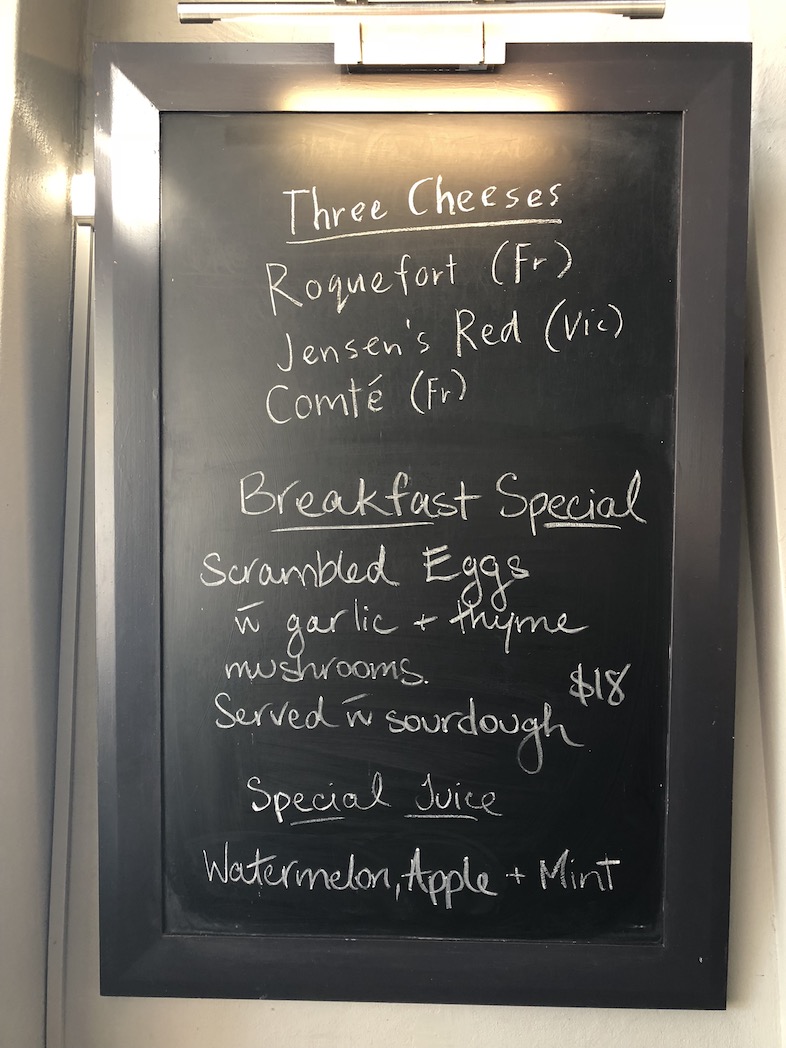 Three Cheeses
Roquefort (Fr)
Jensen's Red (Vic)
Comté (Fr)
Breakfast Special
Scrambled Eggs
w̄ garlic + thyme
mushrooms.
$18
Served w̄ sourdough
Special Juice
Watermelon, Apple + Mint